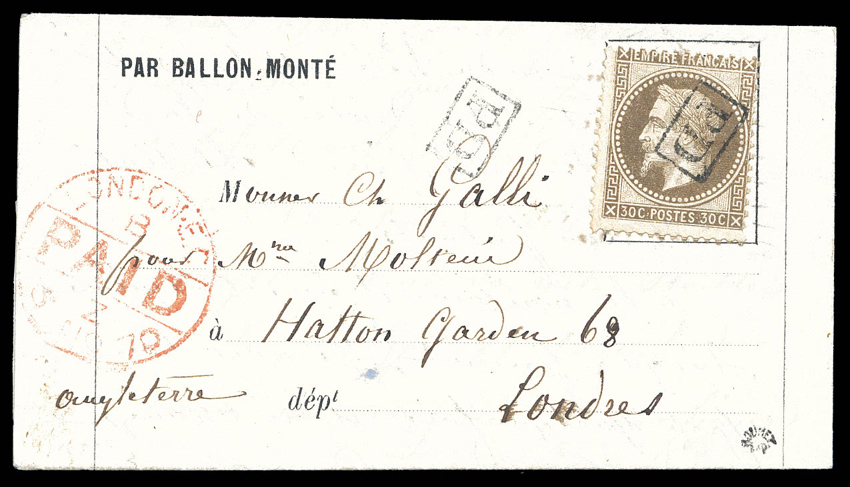 PAR BALLON MONTÉ
PD
EMPIRE FRANÇAIS
PD
30C POSTES 30C
Ch Galli
LONDON
B
PAID
pour Mme
à Hatton Garden 68
70
Angleterre dépt Londres